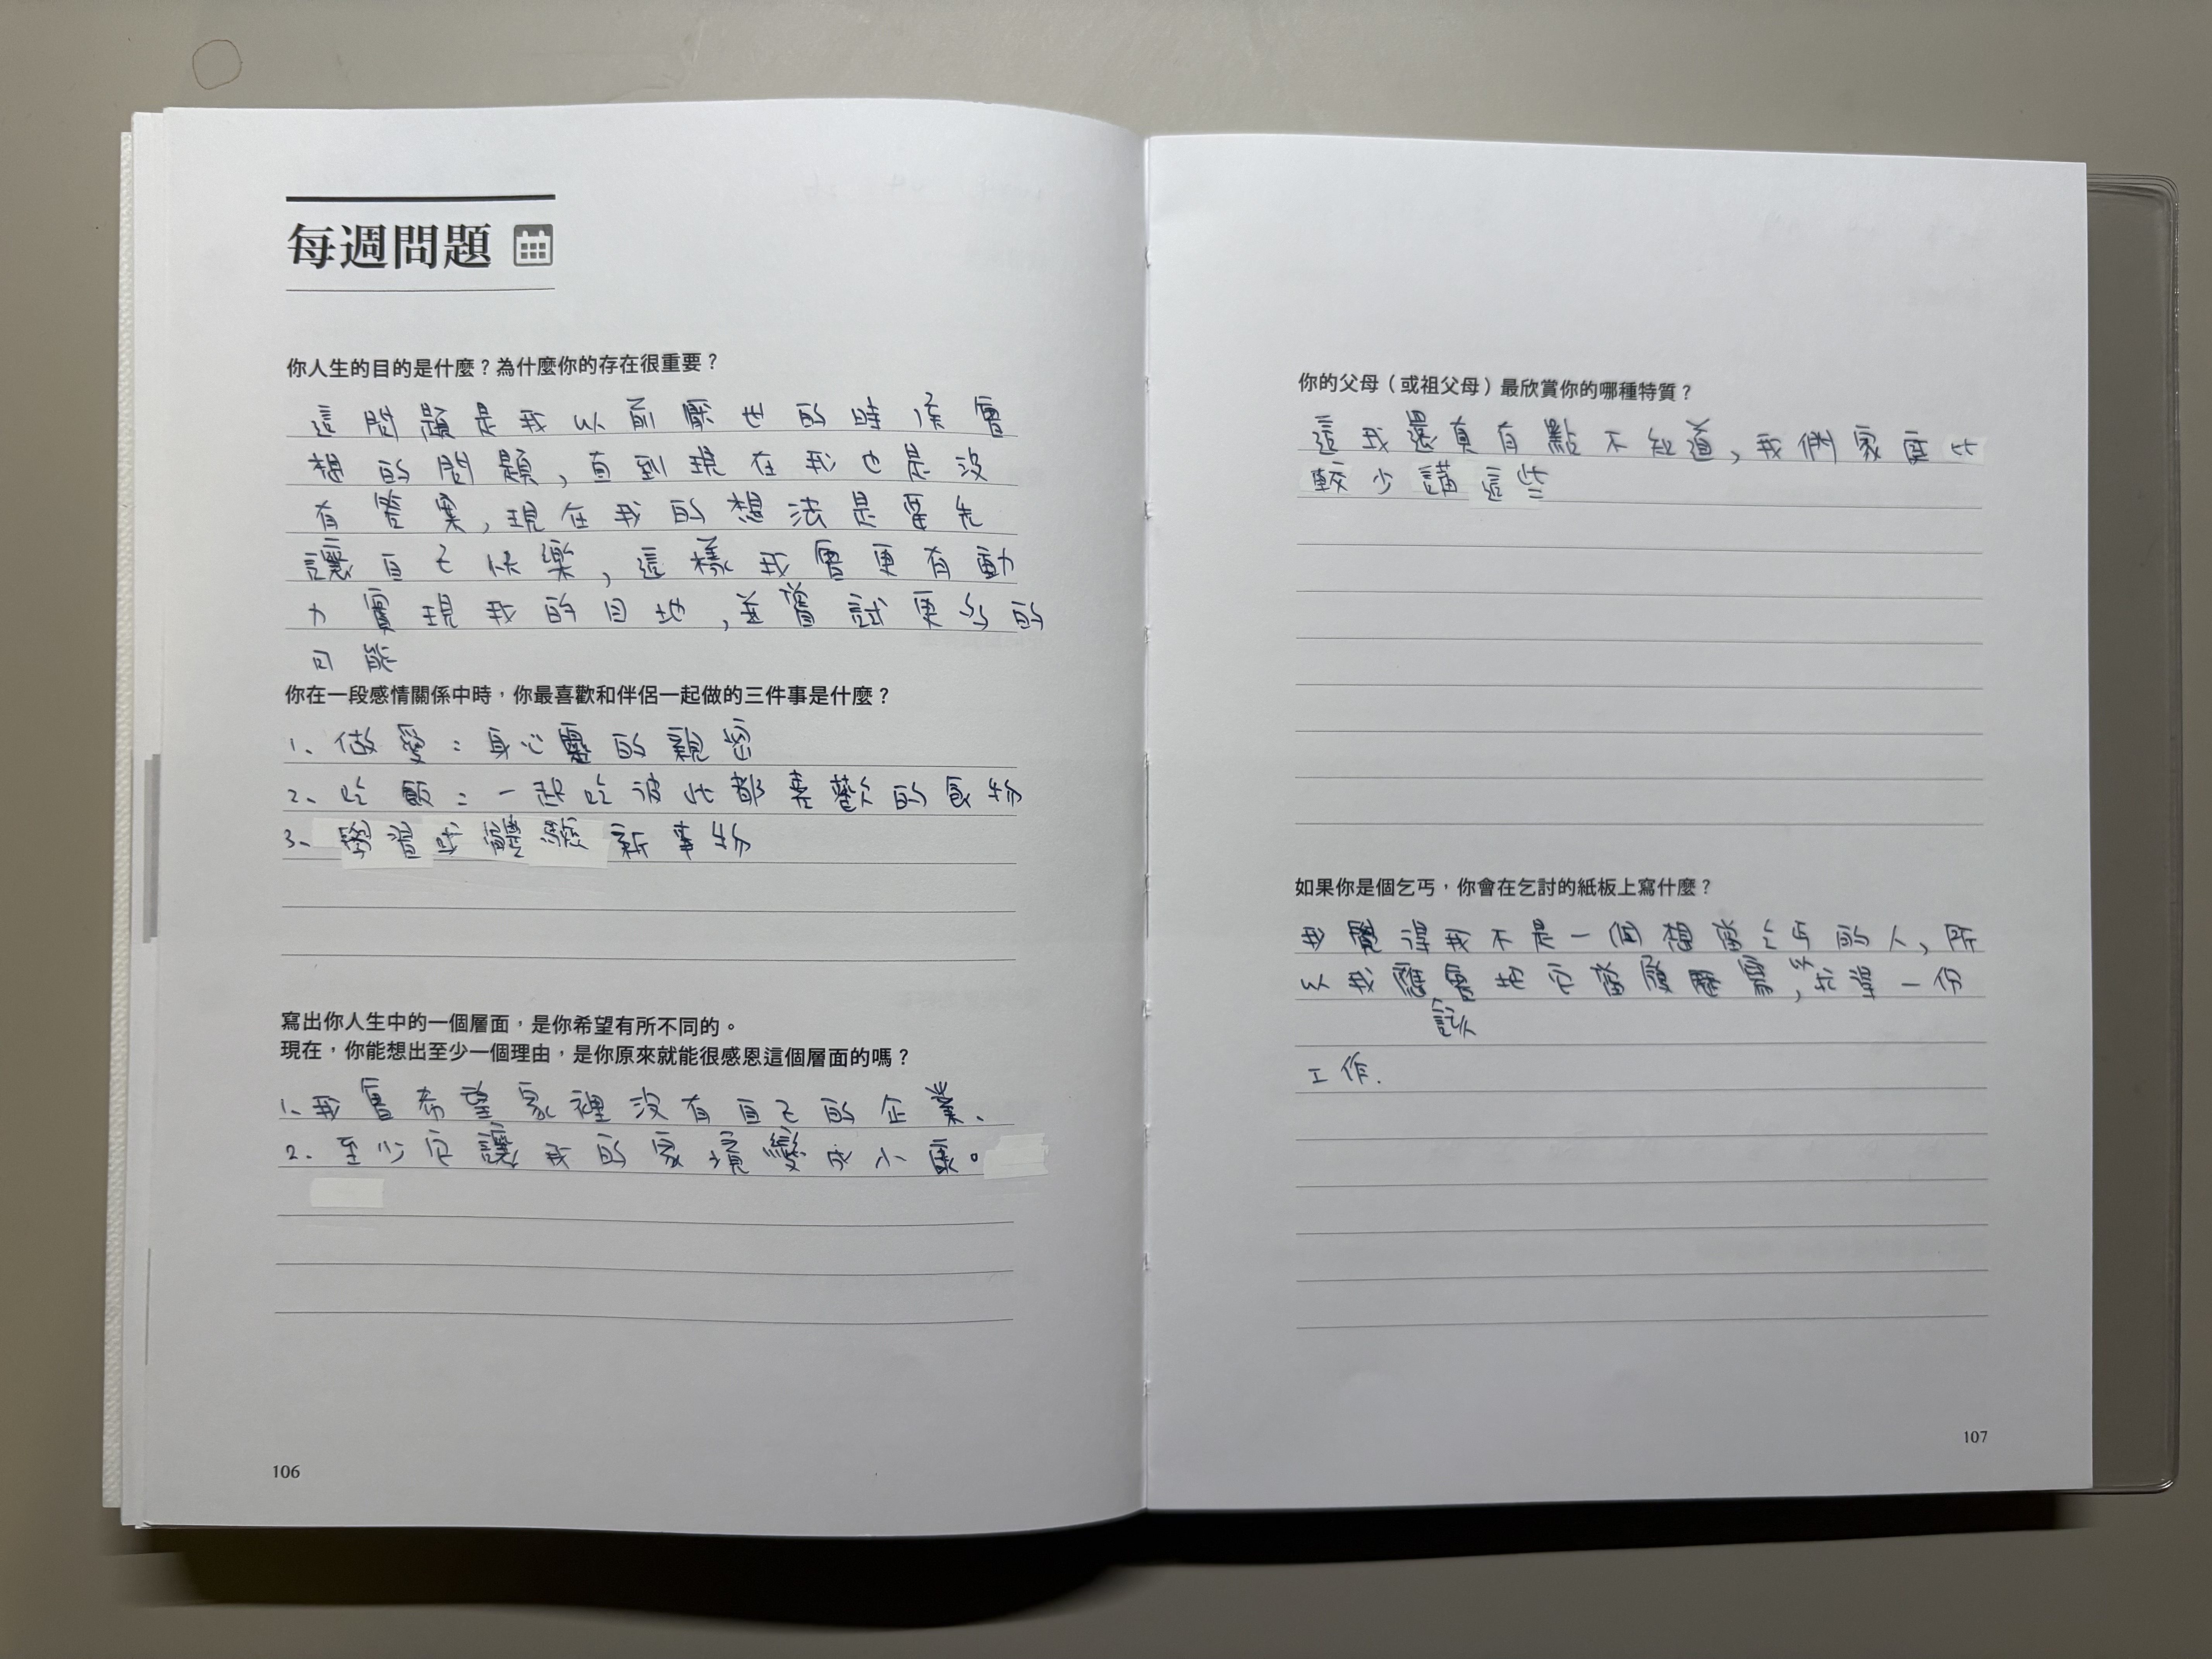 每週問題
你人生的目的是什麼？為什麼你的存在很重要？
這問題是我以前厭世的時候會
想的問題，直到現在我也是沒
有答案，現在我的想法是要先
讓自己快樂，這樣我會更有動
力實現我的目地，並嘗試更多的
可能
你在一段感情關係中時，你最喜歡和伴侶一起做的三件事是什麼？
1、做愛：身心靈的親密
2、吃飯：一起吃彼此都喜歡的食物
3、學習或體驗新事物
寫出你人生中的一個層面，是你希望有所不同的。
現在，你能想出至少一個理由，是你原來就能很感恩這個層面的嗎？
1、我會希望家裡沒有自己的企業、
2、至少它讓我的家境變成小康。
106
你的父母（或祖父母）最欣賞你的哪種特質？
這我還真有點不知道，我們家庭比
較少講這些
如果你是個乞丐，你會在乞討的紙板上寫什麼？
我覺得我不是一個想當乞丐的人，所
以我應會把它當履歷寫，以求得一份
該
工作.
107